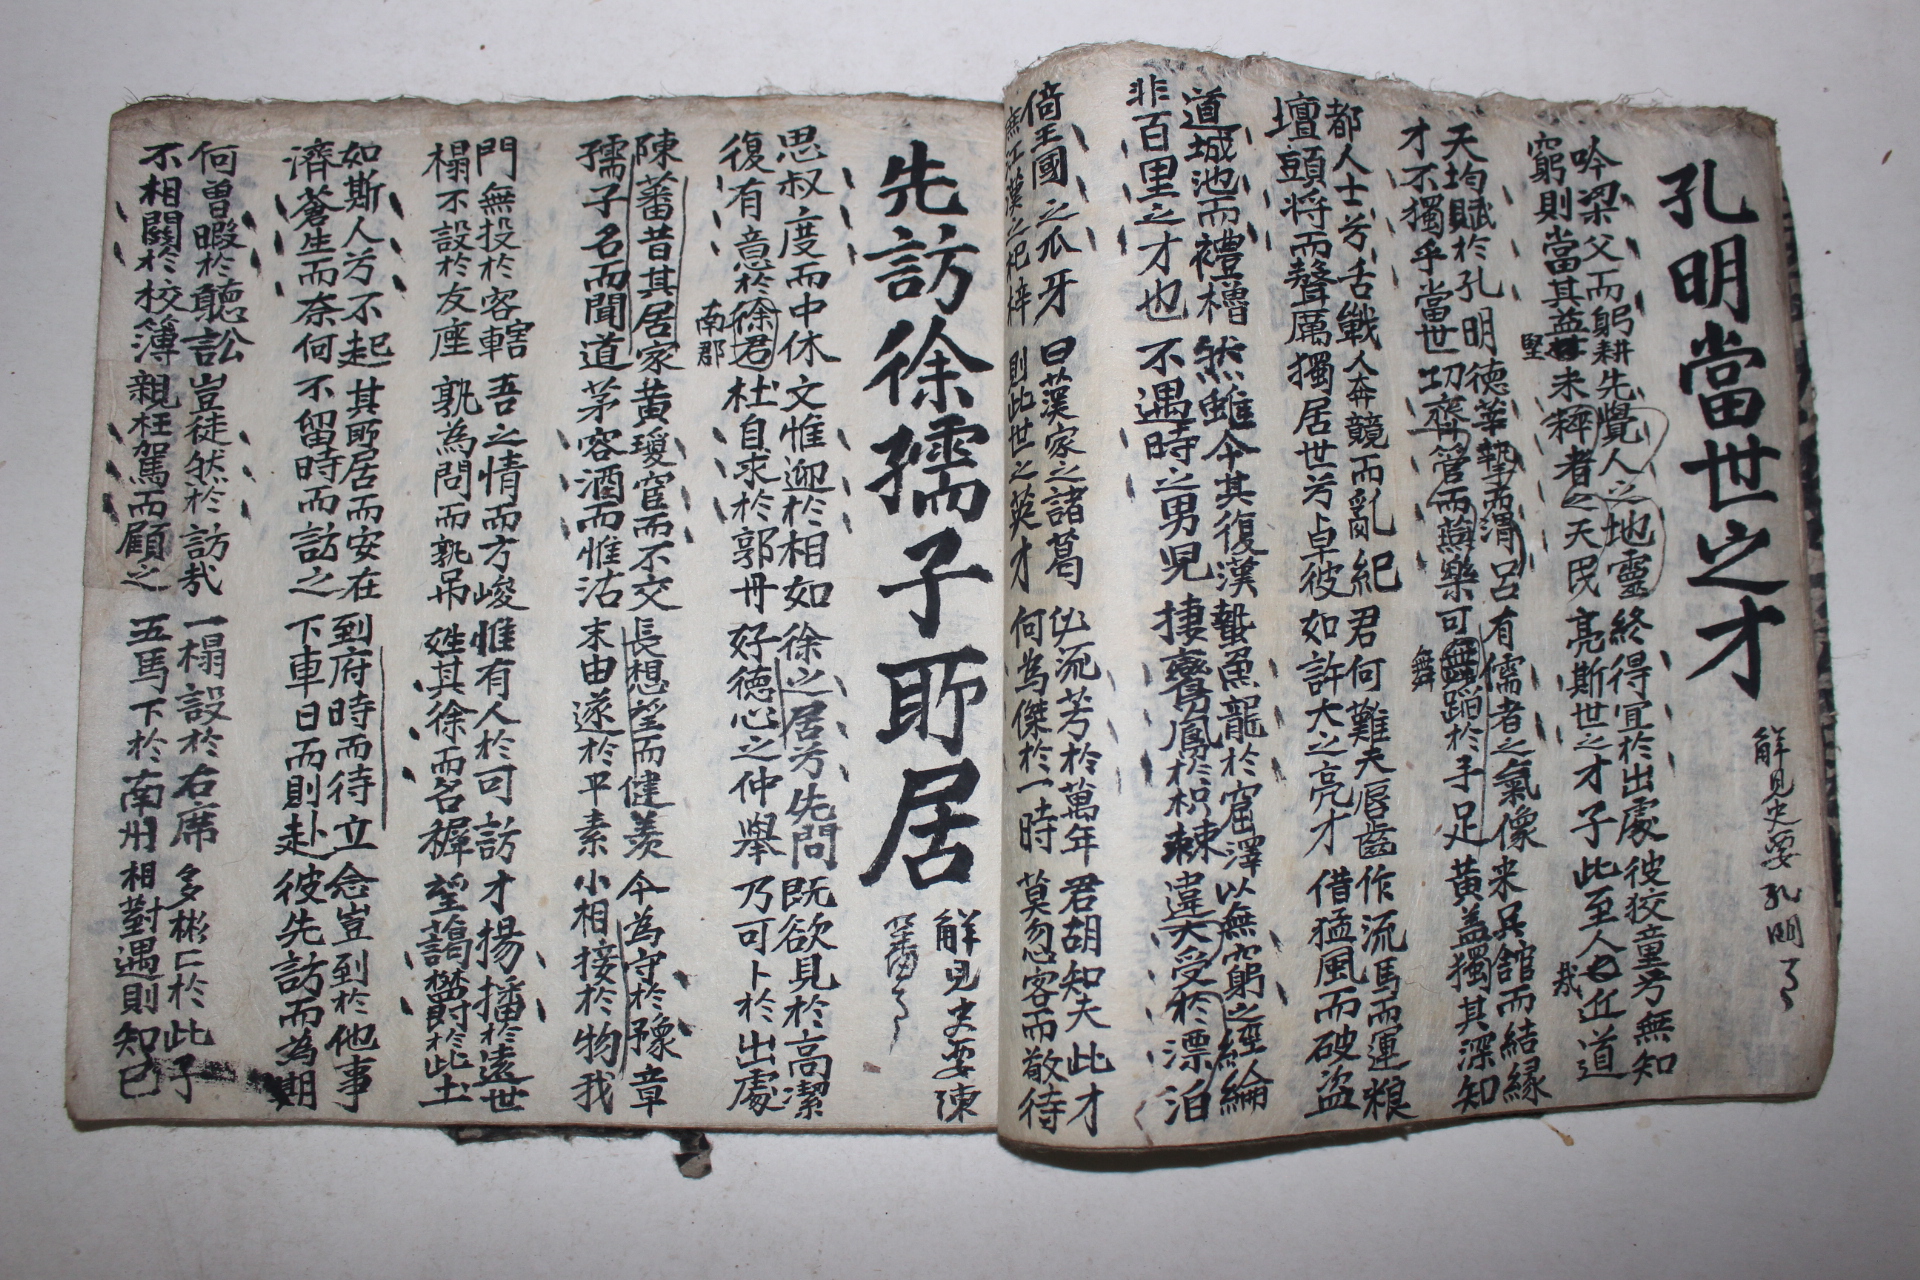 孔明當世之才
解見史要孔明了
吟梁父而躬耕先覺人之地靈終得宜於出處彼狡童兮無知
窮則當其益堅未釋者之天民亮斯世之才子此至人哉近道
天均賦於孔明德華摯而渭呂有儒者之氣像來吳舘而結緣
才不獨乎當世功齊管而燕樂可舞蹈於手足黃盖獨其深知
都人士兮舌戰人奔競而亂紀君何難夫唇齒作流馬而運粮
壇頭將而聲厲獨居世兮卓彼如許大之亮才借猛風而破盜
道城池而禮櫓然雖今其復漢蟄魚龍於窟澤以無窮之經綸
非百里之才也不遇時之男兒捿鸞鳳於枳棘違大受於漂泊
倚王國之爪牙曰漢家之諸葛必流芳於萬年君胡知夫此才
無江漢之杞梓則此世之英才何為傑於一時莫忽客而敬待
先訪徐孺子所居
解見史要陳
蕃傳了
思叔度而中休文惟迎於相如徐之居兮先問旣欲見於高潔
復有意於徐君杜自求於郭丹好德心之仲擧乃可卜於出處
南郡
陳蕃昔其居家黃瓊宦而不交長想望而健羨今為守於豫章
孺子名而聞道茅容酒而惟沽末由遂於平素小相接於物我
門無投於客轄吾之情而方峻惟有人於可訪才揚播於遠世
榻不設於友座孰為問而孰吊姓其徐而名穉望藹欝於此土
如斯人兮不起其所居而安在到府時而待立念豈到於他事
濟蒼生而奈何不留時而訪之下車日而則赴彼先訪而為期
何曾暇於聽訟豈徒然於訪哉一榻設於右席多彬仁於此子
不相關於校簿親枉駕而顧之五馬下於南州相對遇則知己